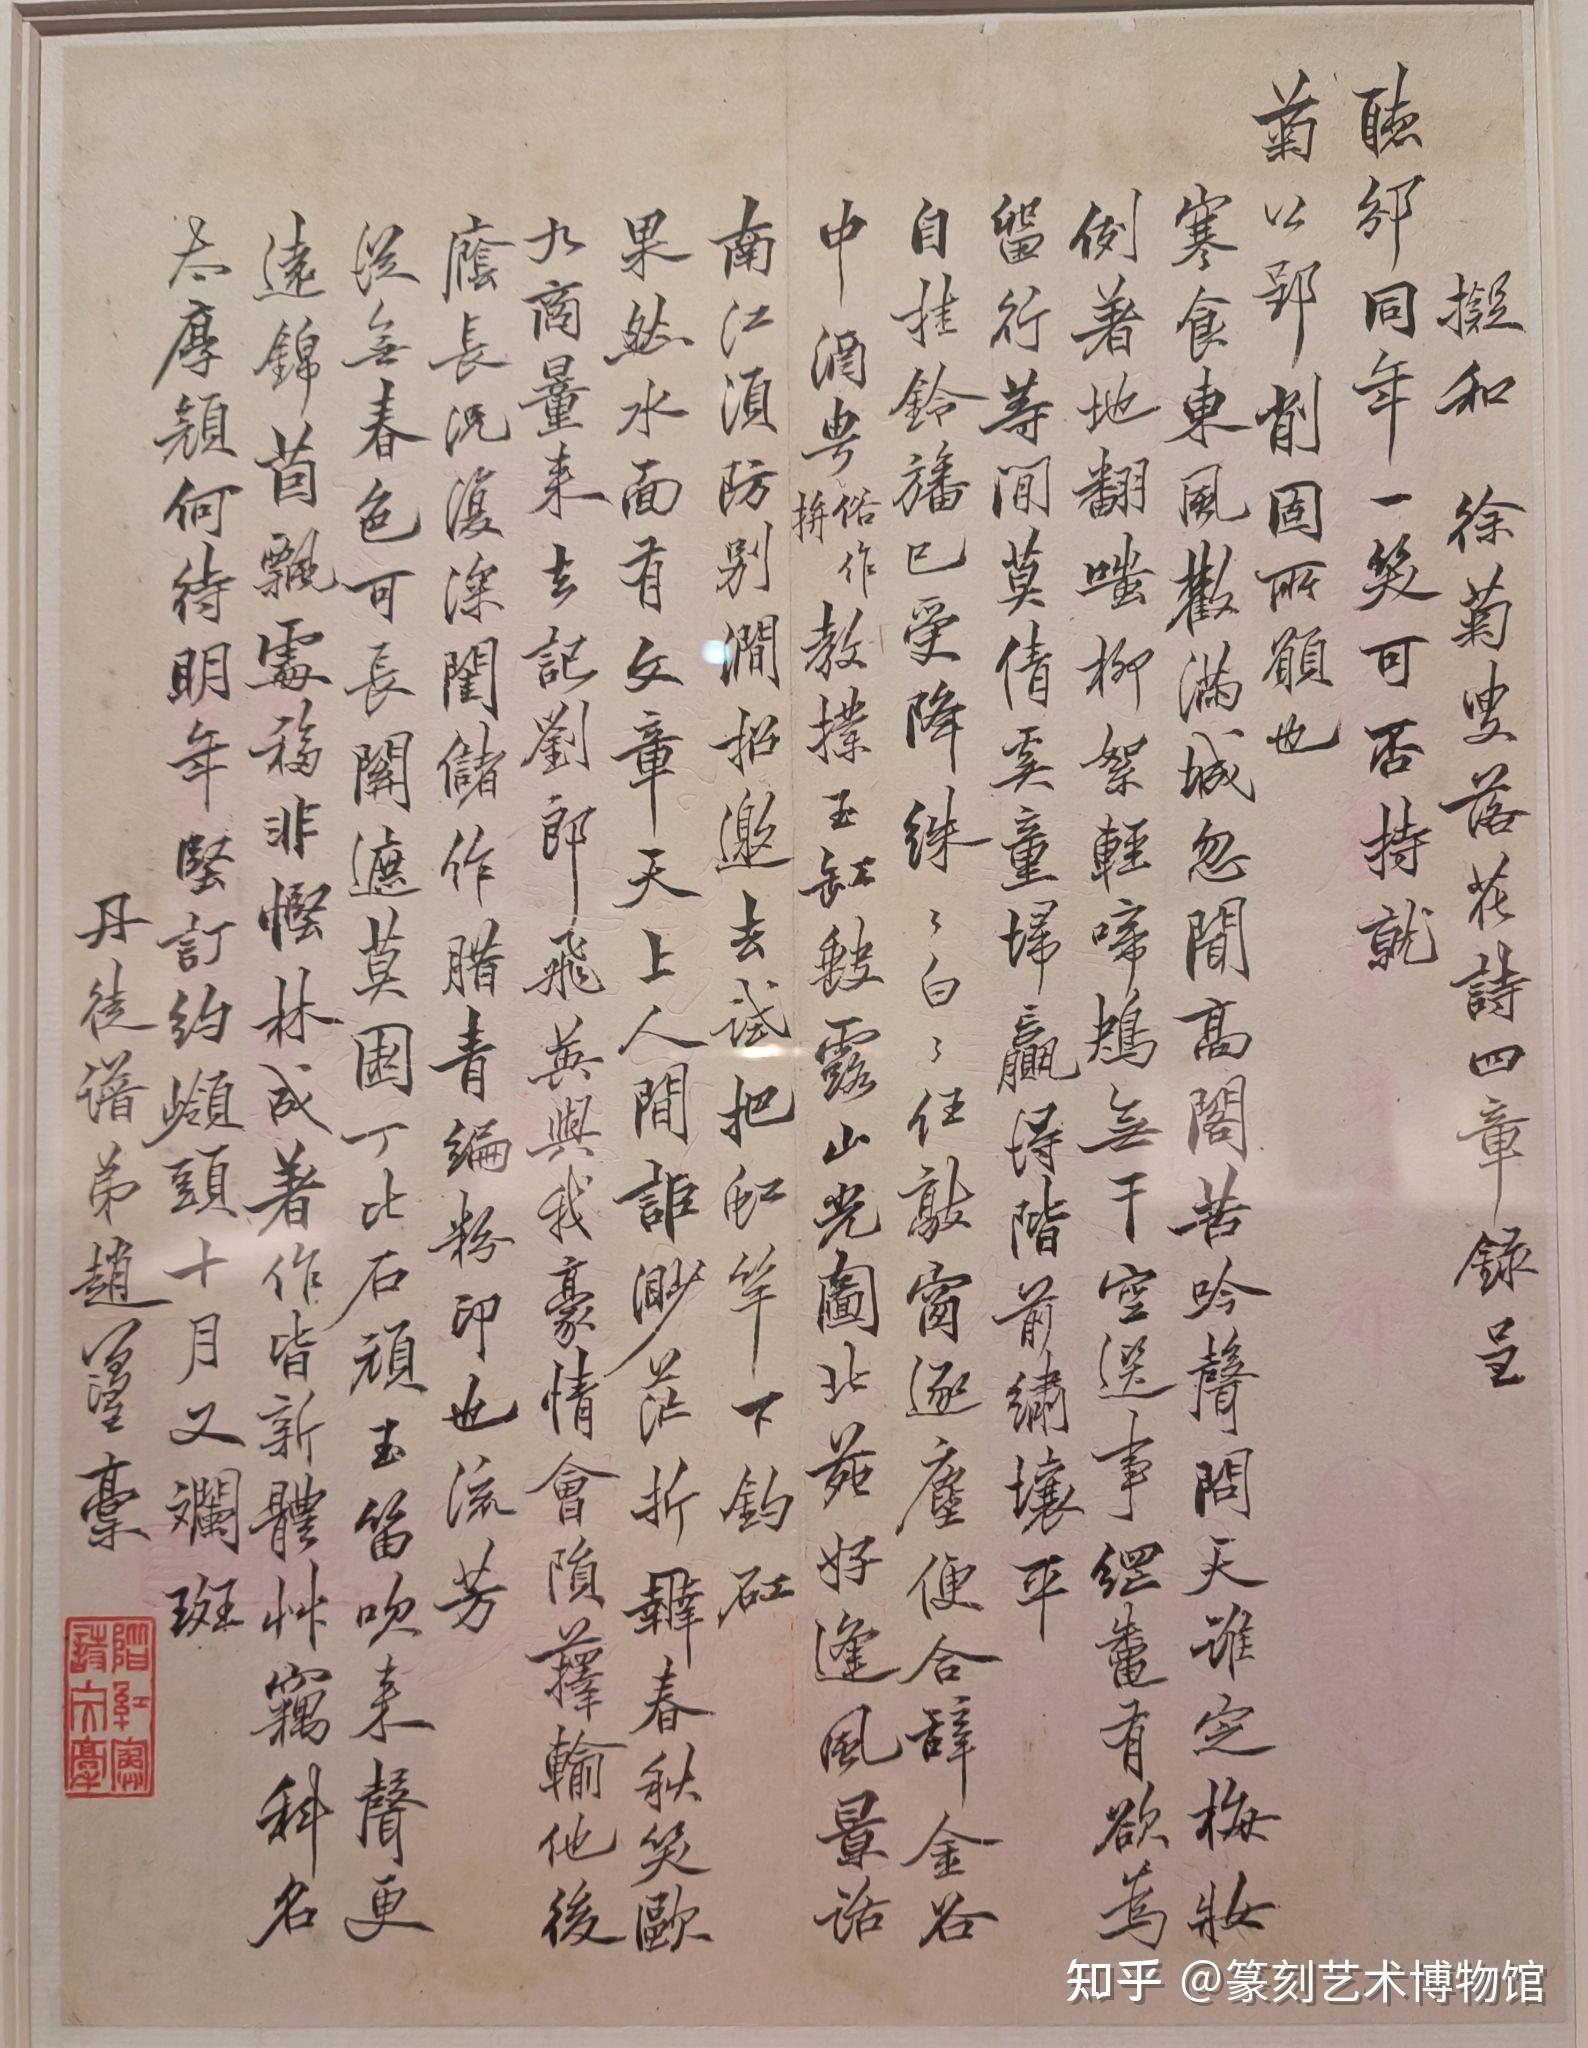 擬和 徐菊叟落花詩四章錄呈
聽邠同年一笑可否持就
菊公郢削固所願也
寒食東風散滿城忽聞高閣苦吟聲問天誰定梅妝
例著地翻嗤柳絮輕啼鴂無干空送事經蠶有欲為
留行等閒莫倩奚童埽贏得階前繡壤平
自挂鈴旛已受降絳〻白〻任敲窗逐塵便合辭金谷
中酒甹俗作拚教撲玉缸 露山光圖北苑好逢風景話
南江須防別澗招邀去試把 竿下釣矼
果然水面有文章天上人間詎渺茫折 春秋笑歐
九商量來去記劉郎飛英與我豪情會隕蘀輸他後
廕長況復深閨儲作腊青編粉印也流芳
從無春色可長關遮莫園丁比石頑玉笛吹來聲更
遠錦茵飄處福非慳林成著作皆新體艸竊科名
太厚顏何待明年堅訂約嶺頭十月又斕斑
丹徒譜弟趙 稾
詩文稾